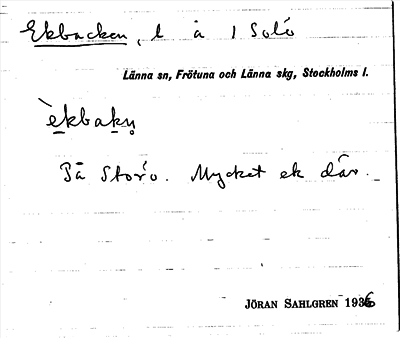 Ekbacken, l å 1 Solö
Länna sn, Frötuna och Länna skg, Stockholms l.
èkbakn̥
På Storö. Mycket ek där.
JÖRAN SAHLGREN 1936